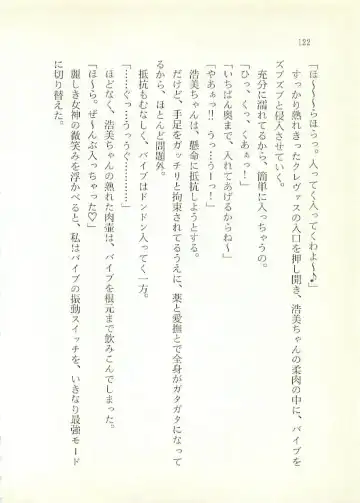 122
「ほ〜〜〜らほらっ。入ってく入ってくわよ〜♪」
すっかり熟れきったクレヴァスの入口を押し開き、浩美ちゃんの柔肉の中に、バイブを
ズブズブと侵入させていく。
充分に濡れてるから、簡単に入っちゃうの。
「ひっ、くっ、くあぁっ！」
「いちばん奥まで、入れてあげるからね〜」
「やあぁっ!!　うっ…うーっ！」
浩美ちゃんは、懸命に抵抗しようとする。
だけど、手足をガッチリと拘束されてるうえに、薬と愛撫とで全身がガタガタになって
るから、ほとんど問題外。
抵抗もむなしく、バイブはドンドン入ってく一方。
「……ぐっ…うっうぐ……っ…！」
ほどなく、浩美ちゃんの熟れた肉壺は、バイブを根元まで飲みこんでしまった。
「ほ〜ら。ぜ〜んぶ入っちゃった♡」
麗しき女神の微笑みを浮かべると、私はバイブの振動スイッチを、いきなり最強モード
に切り替えた。